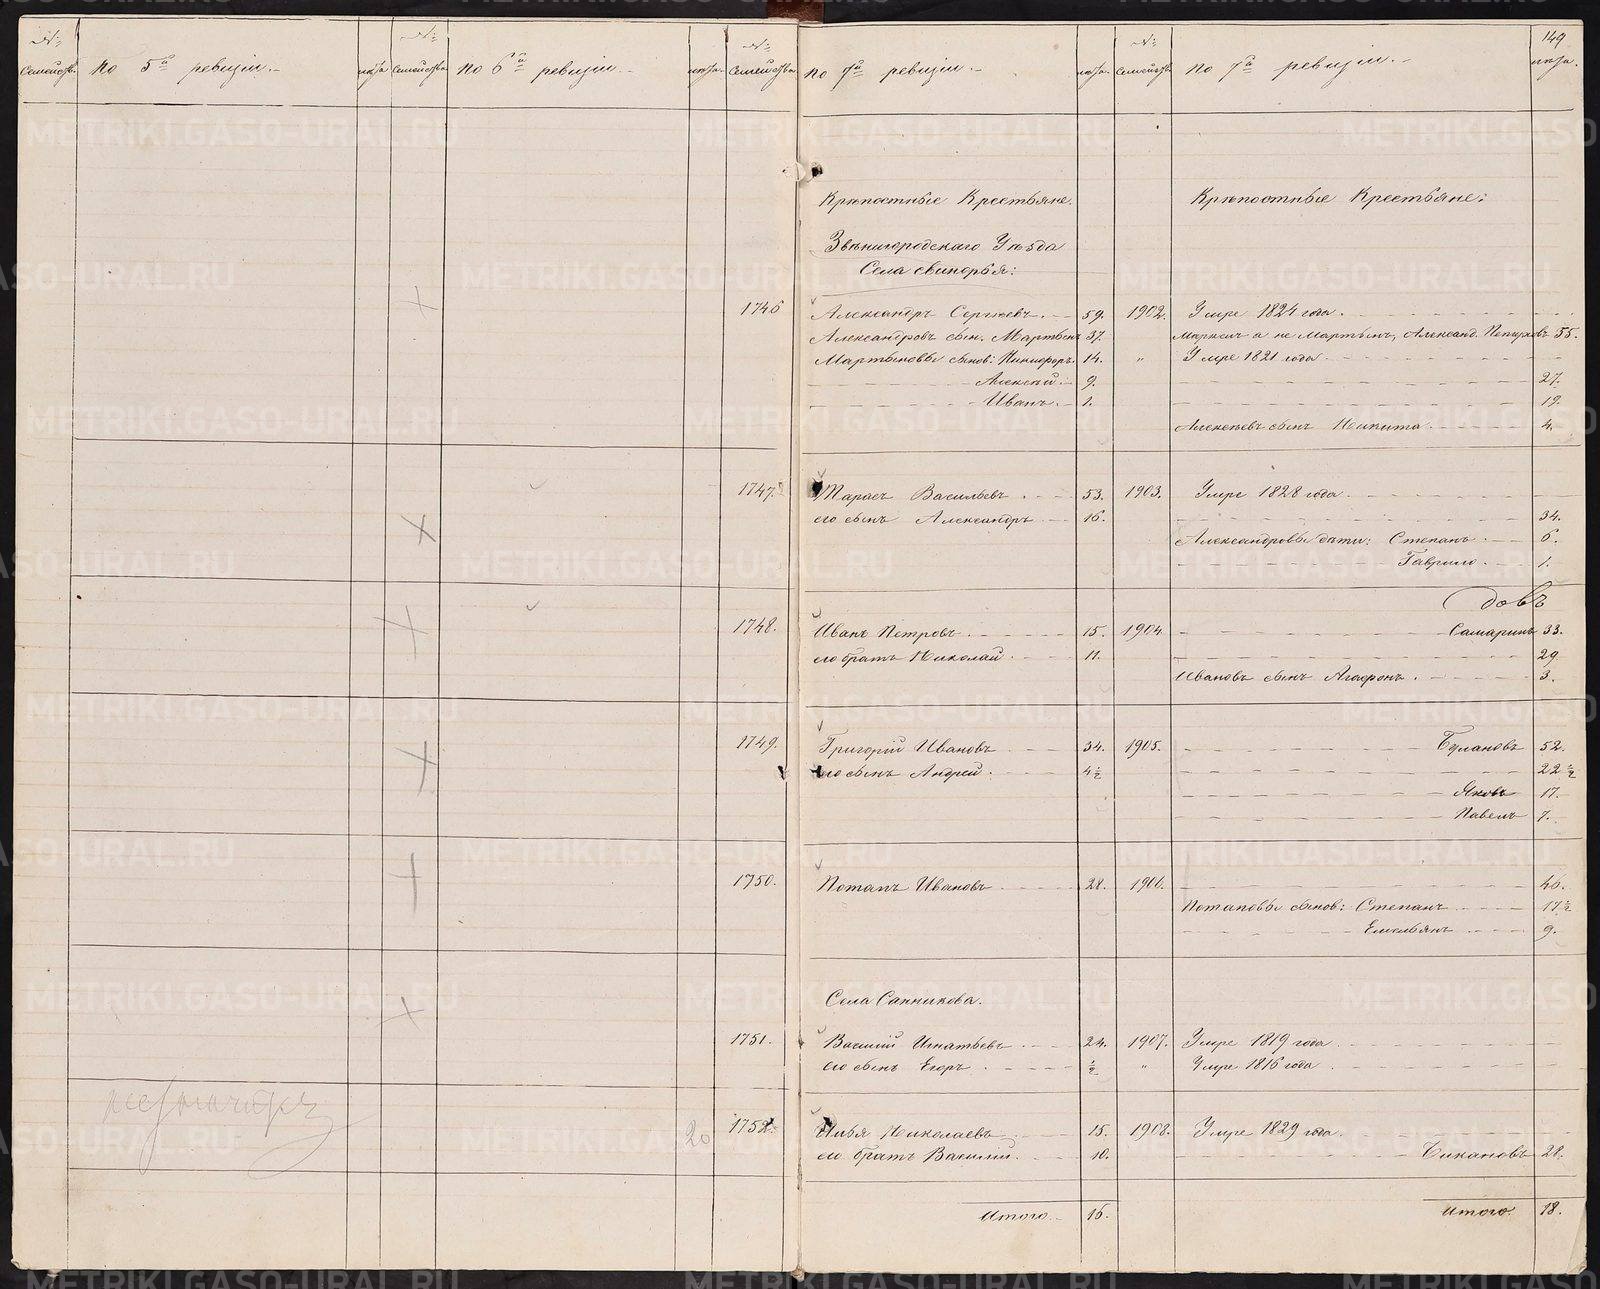 149
№ Семейства. По 5й ревизии. лѣта № Семейства. По 6й ревизии. лѣта. № Семейства По 7й ревизии. лѣта. № Семейства По 7й ревизии. лѣта.
Крѣпостные Крестьяне. Крѣпостные Крестьяне:
Звѣнигородскаго Уѣзда
Села свинорья:
1746 Александръ Сергѣевъ. 59. 1902. Умре 1824 года.
Александровъ сын. Мартынъ 37. Маркелъ а не Мартынъ, Александ. 55.
Мартыновы сынов: Никифоръ. 14. " Умре 1821 года
Алексѣй. 9. 27.
Иванъ. 1. 19.
Алексѣевъ сынъ Никита. 4.
1747. Тарасъ Васильевъ. 53. 1903. Умре 1828 года.
его сынъ Александръ 16. 34.
Александровы дѣти: Степанъ. 6.
Гаврило. 1.
довъ
1748. Иванъ Петровъ. 15. 1904. Самаринъ 33.
его братъ Николай. 11. 29
Ивановъ сынъ Агафонъ. 3.
1749. Григорій Ивановъ 34. 1905. Булановъ 52.
его сынъ Андрей. 4½ 22½
Яковъ 17.
Павелъ 7.
1750. Потапъ Ивановъ 28. 1906. 46.
Потаповы сынов: Степанъ 17½
Емельянъ 9.
Села Санникова.
1751. Василій Игнатьевъ 24. 1907. Умре 1819 года
его сынъ Егоръ. ½ " Умре 1816 года
20 1752. Илья Николаевъ 15. 1908. Умре 1829 года.
его братъ Василій. 10. Бикановъ 28.
Итого. 16. Итого. 18.
METRIKI.GASO-URAL.RU